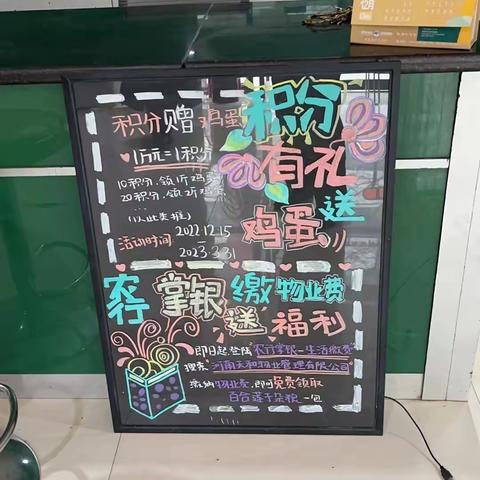 积分赠鸡蛋
♥1万元=1积分
10积分,领1斤鸡蛋
20积分,领2斤鸡蛋
...
(以此类推)
活动时间:2022.12.15
—
2023.3.31
积分
有礼
送
鸡蛋
农行掌银缴物业费
送福利
即日起,登陆"农行掌银—生活缴费"
搜索,河南天和物业管理有限公司
缴纳物业费,即可免费领取
百合莲子杂粮一包
12月